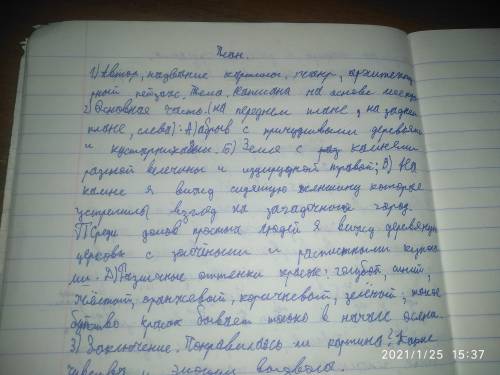 План.
1) Автор, название картины, жанр, архитектур
ный пейзаж. Тема. Написана на основе
2) Основная часть. (на переднем плане, на заднем
плане, слева): А) Обрыв с причудливыми деревьями
и кустарниками. Б) Земля с камнями
разной величины и изумрудной травой; В) На
камне я вижу сидящую женщину которая
устремила взгляд на загадочный город.
Г) Среди домов простых людей я вижу деревянную
церковь с и расписными купола
ми. Д) Различные оттенки красок: голубой, синий,
жёлтый, оранжевый, коричневый, зелёный; такое
буйство красок бывает только в начале осени.
3) Заключение. Понравилась ли картина? Какие
чувства и эмоции вызвала.
2021/1/25 15:37